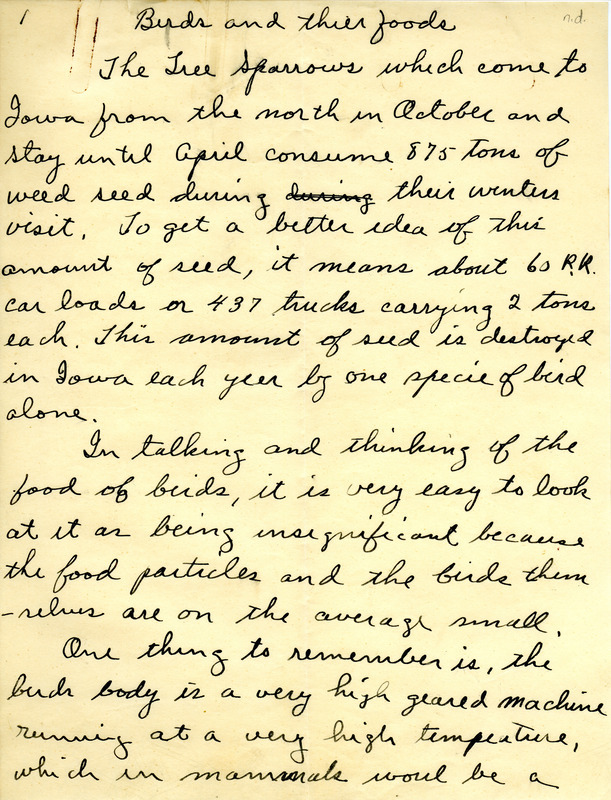 1
Birds and thier foods
n.d.
The Tree Sparrows which come to
Iowa from the north in October and
stay until April consume 875 tons of
weed seed during during their winters
visit. To get a better idea of this
amount of seed, it means about 60 R.R.
car loads or 437 trucks carrying 2 tons
each. This amount of seed is destroyed
in Iowa each year by one specie of bird
alone.
In talking and thinking of the
food of birds, it is very easy to look
at it as being insignificant because
the food particles and the birds them
-selves are on the average small.
One thing to remember is, the
birds body is a very high geared machine
running at a very high tempeature,
which in mammals woul be a